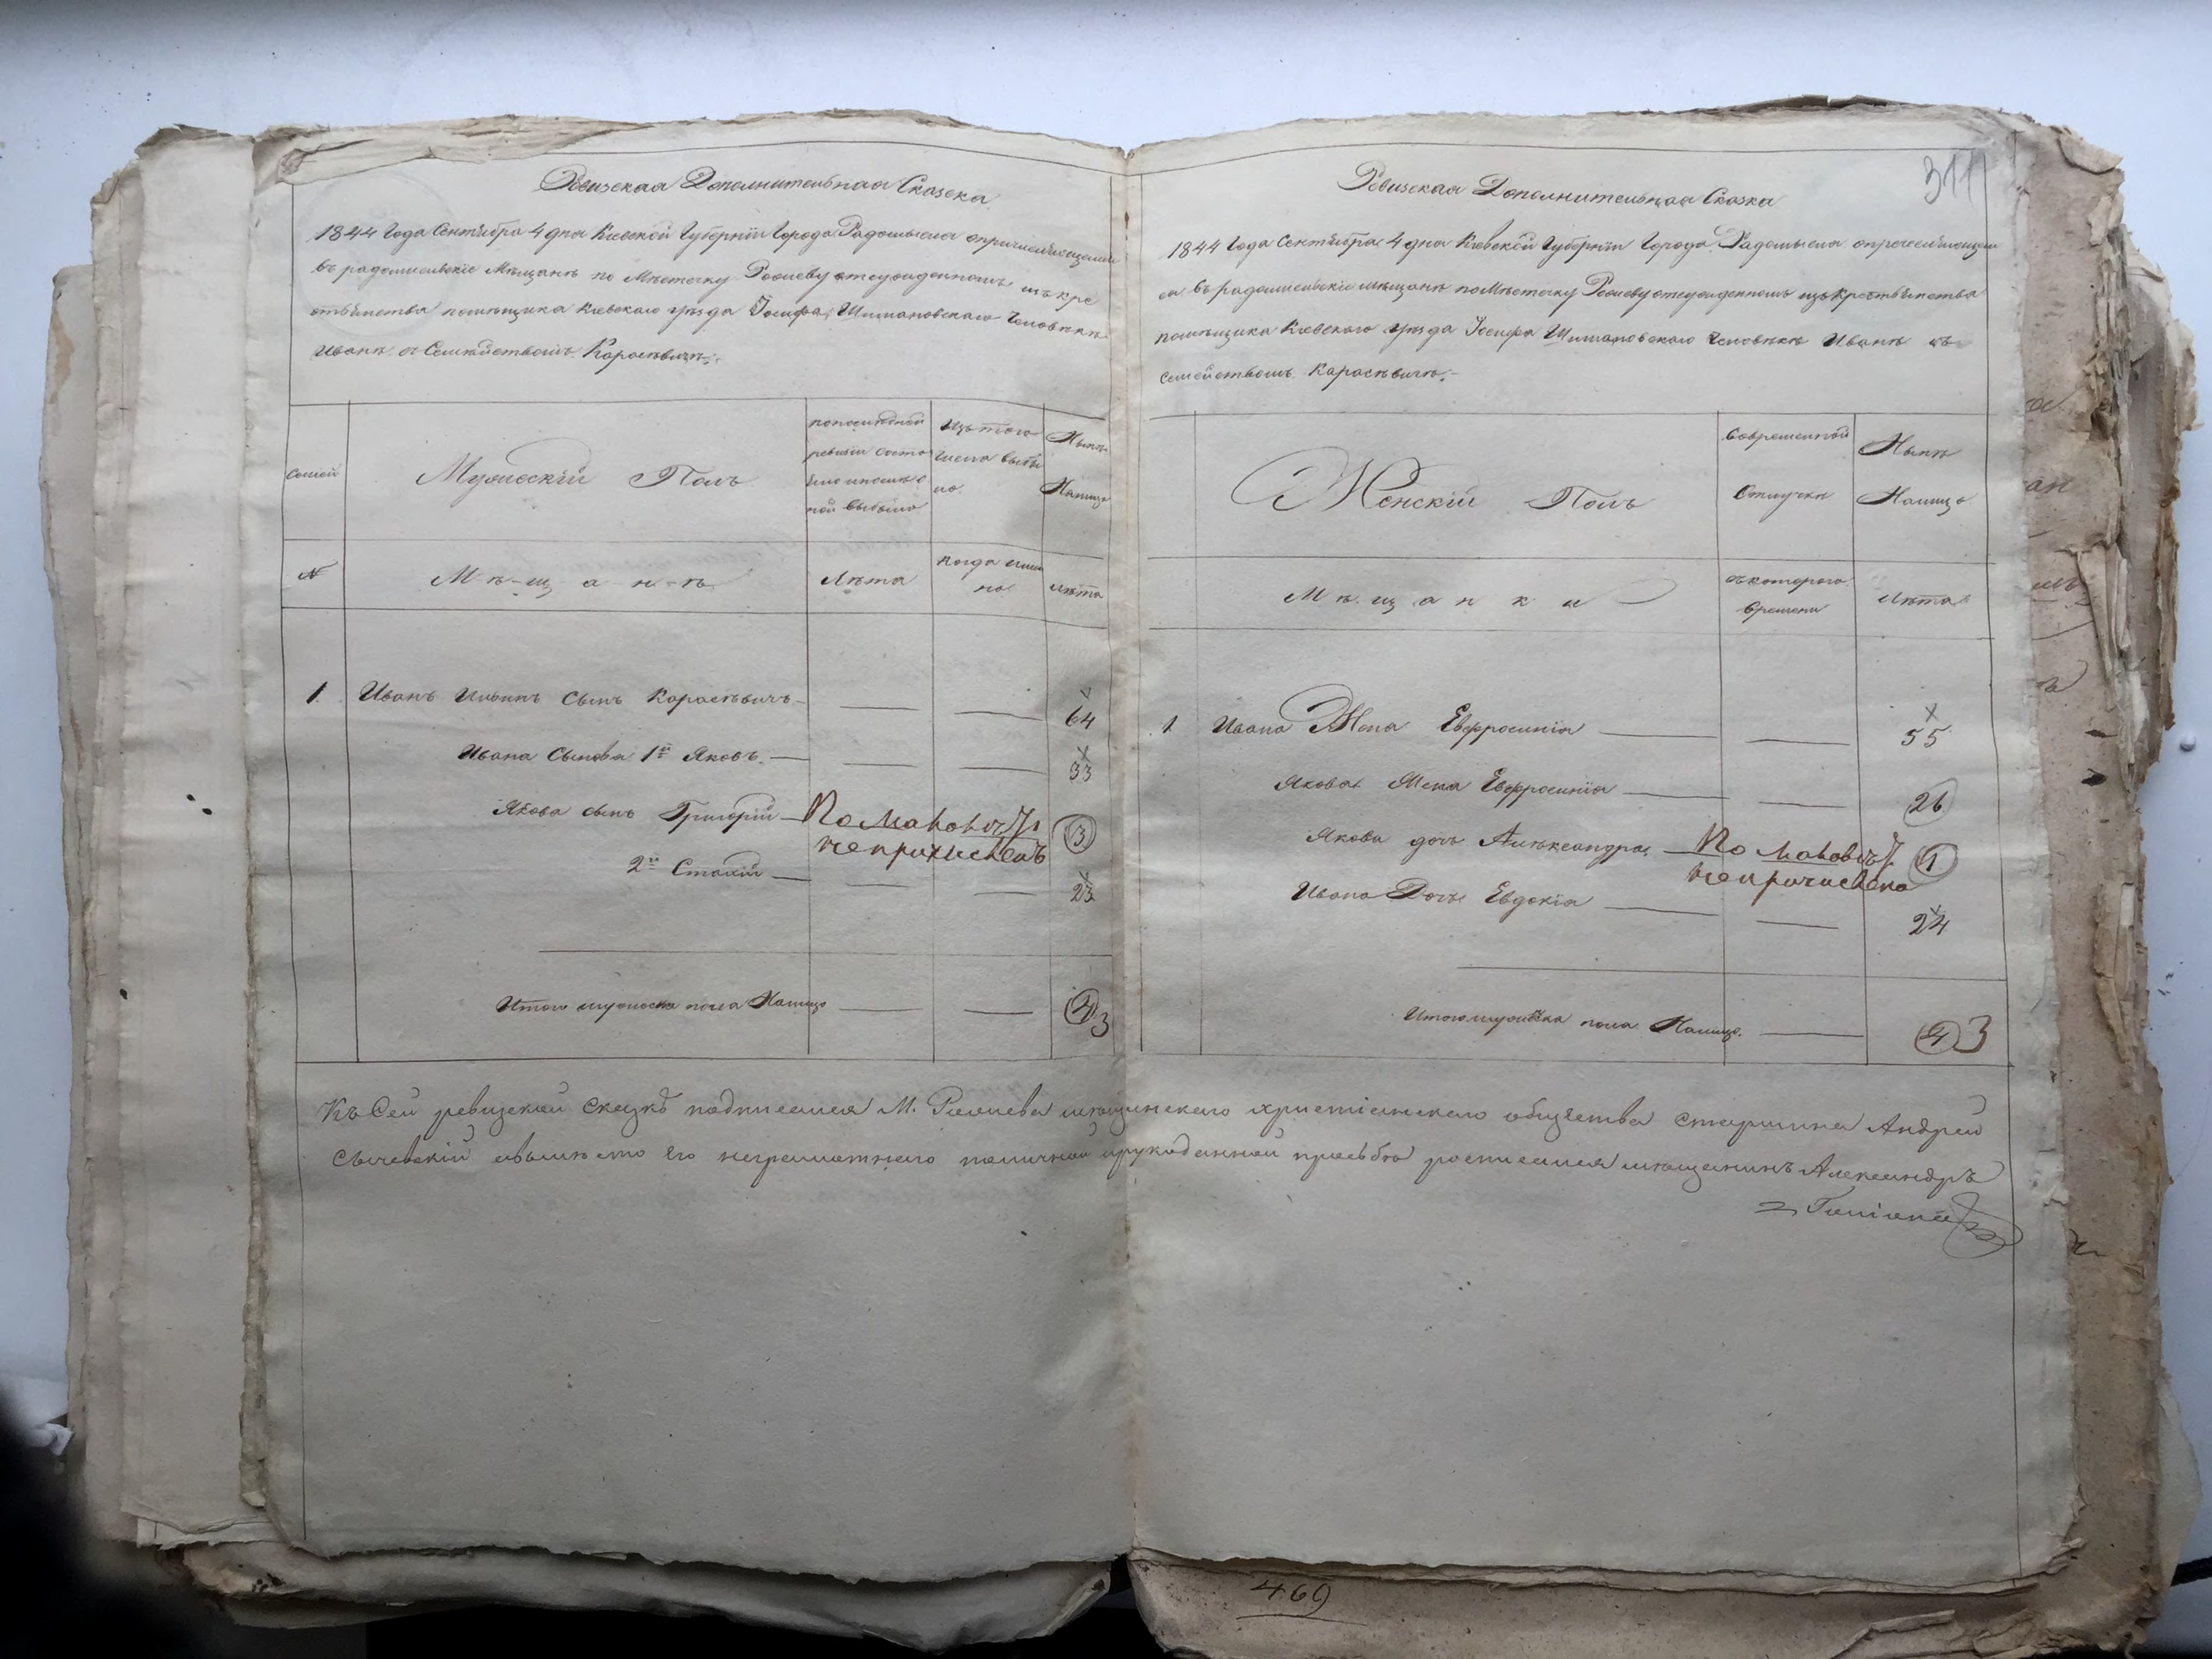 Ревизская Дополнительная Сказка
1844 Года Сентября 4 дня Кіевской Губерніи Города Радомысля о причисляющемся
въ радомысльскіе Мѣщане по Мѣстечку Рожеву отсужденномъ изъ кре
стьянства помѣщика Кіевскаго уѣзда Іосифа Шимановскаго Человѣкѣ
Иванѣ съ Семѣйствомъ Карасѣвичѣ.
Семей
Мужескій Полъ
по последней
ревизіи состо
яло и после о
ной выбыло
Изъ того
числа выбы
ло
Нынѣ
Налицо
№
М-ѣ-щ-а-н-ѣ
Лѣта
Когда имян
но
Лѣта
1 Иванъ Ильинъ Сынъ Карасѣвичъ 64
Ивана Сыновья 1й Яковъ 33
Якова сынъ Григорій 3
не причисленъ
2й Стахій 23
Итого мужеска пола Налицо 4 3
Ревизская Дополнительная Сказка
311
1844 Года Сентября 4 дня Кіевской Губерніи Города Радомысля о причисляющем
ся въ радомысльскіе мѣщане по Мѣстечку Рожеву отсужденномъ изъ Крестьянства
помѣщика Кіевскаго уѣзда Іосифа Шимановскаго Человѣкѣ Иванѣ съ
семействомъ Карасѣвичѣ.
Женскій Полъ
Во временной
Отлучки
Нынѣ
Налицо
М ѣ щ а н к и
съ котораго
времени
Лѣта
1 Ивана Жена Евфросинія 55
Якова Жена Евфросинія 26
Якова дочь Алѣксандра 1
не причислена
Ивана Дочь Евдокія 24
Итого пола Налицо 4 3
Къ Сей ревизской сказкѣ подписался М. Рожева мѣщанскаго христіанскаго общества старшина Андрей
Сычевскій а вмѣсто его неграмотнаго по личной и рукоданной прозьбѣ росписался мѣщанинъ Александръ
469